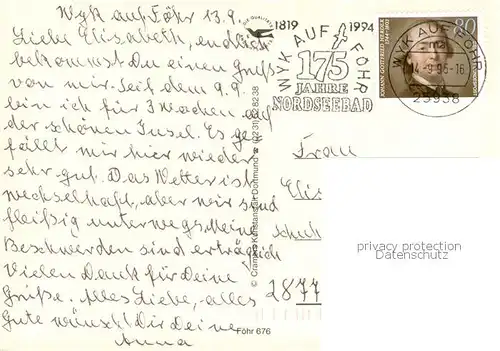 Wyk auf Föhr 13.9.
Liebe Elisabeth, endlich
bekommst Du einen Gruß
von mir. Seit dem 9.9.
bin ich für 3 Wochen auf
der schönen Insel. Es ge-
fällt mir hier wieder
sehr gut. Das Wetter ist
wechselhaft, aber wir sind
fleißig unterwegs. Meine
Beschwerden sind erträglich
Vielen Dank für Deine
Grüße. Alles Liebe, alles
Gute wünscht Dir Deine
Anna
1819 1994
WYK AUF FÖHR
175
JAHRE
NORDSEEBAD
80
WYK AUF FÖHR
-9.95-16
25938
Frau
Eli
schul
2877
© Cramers Kunstanstalt Dortmund
Föhr 676
privacy protection
Datenschutz